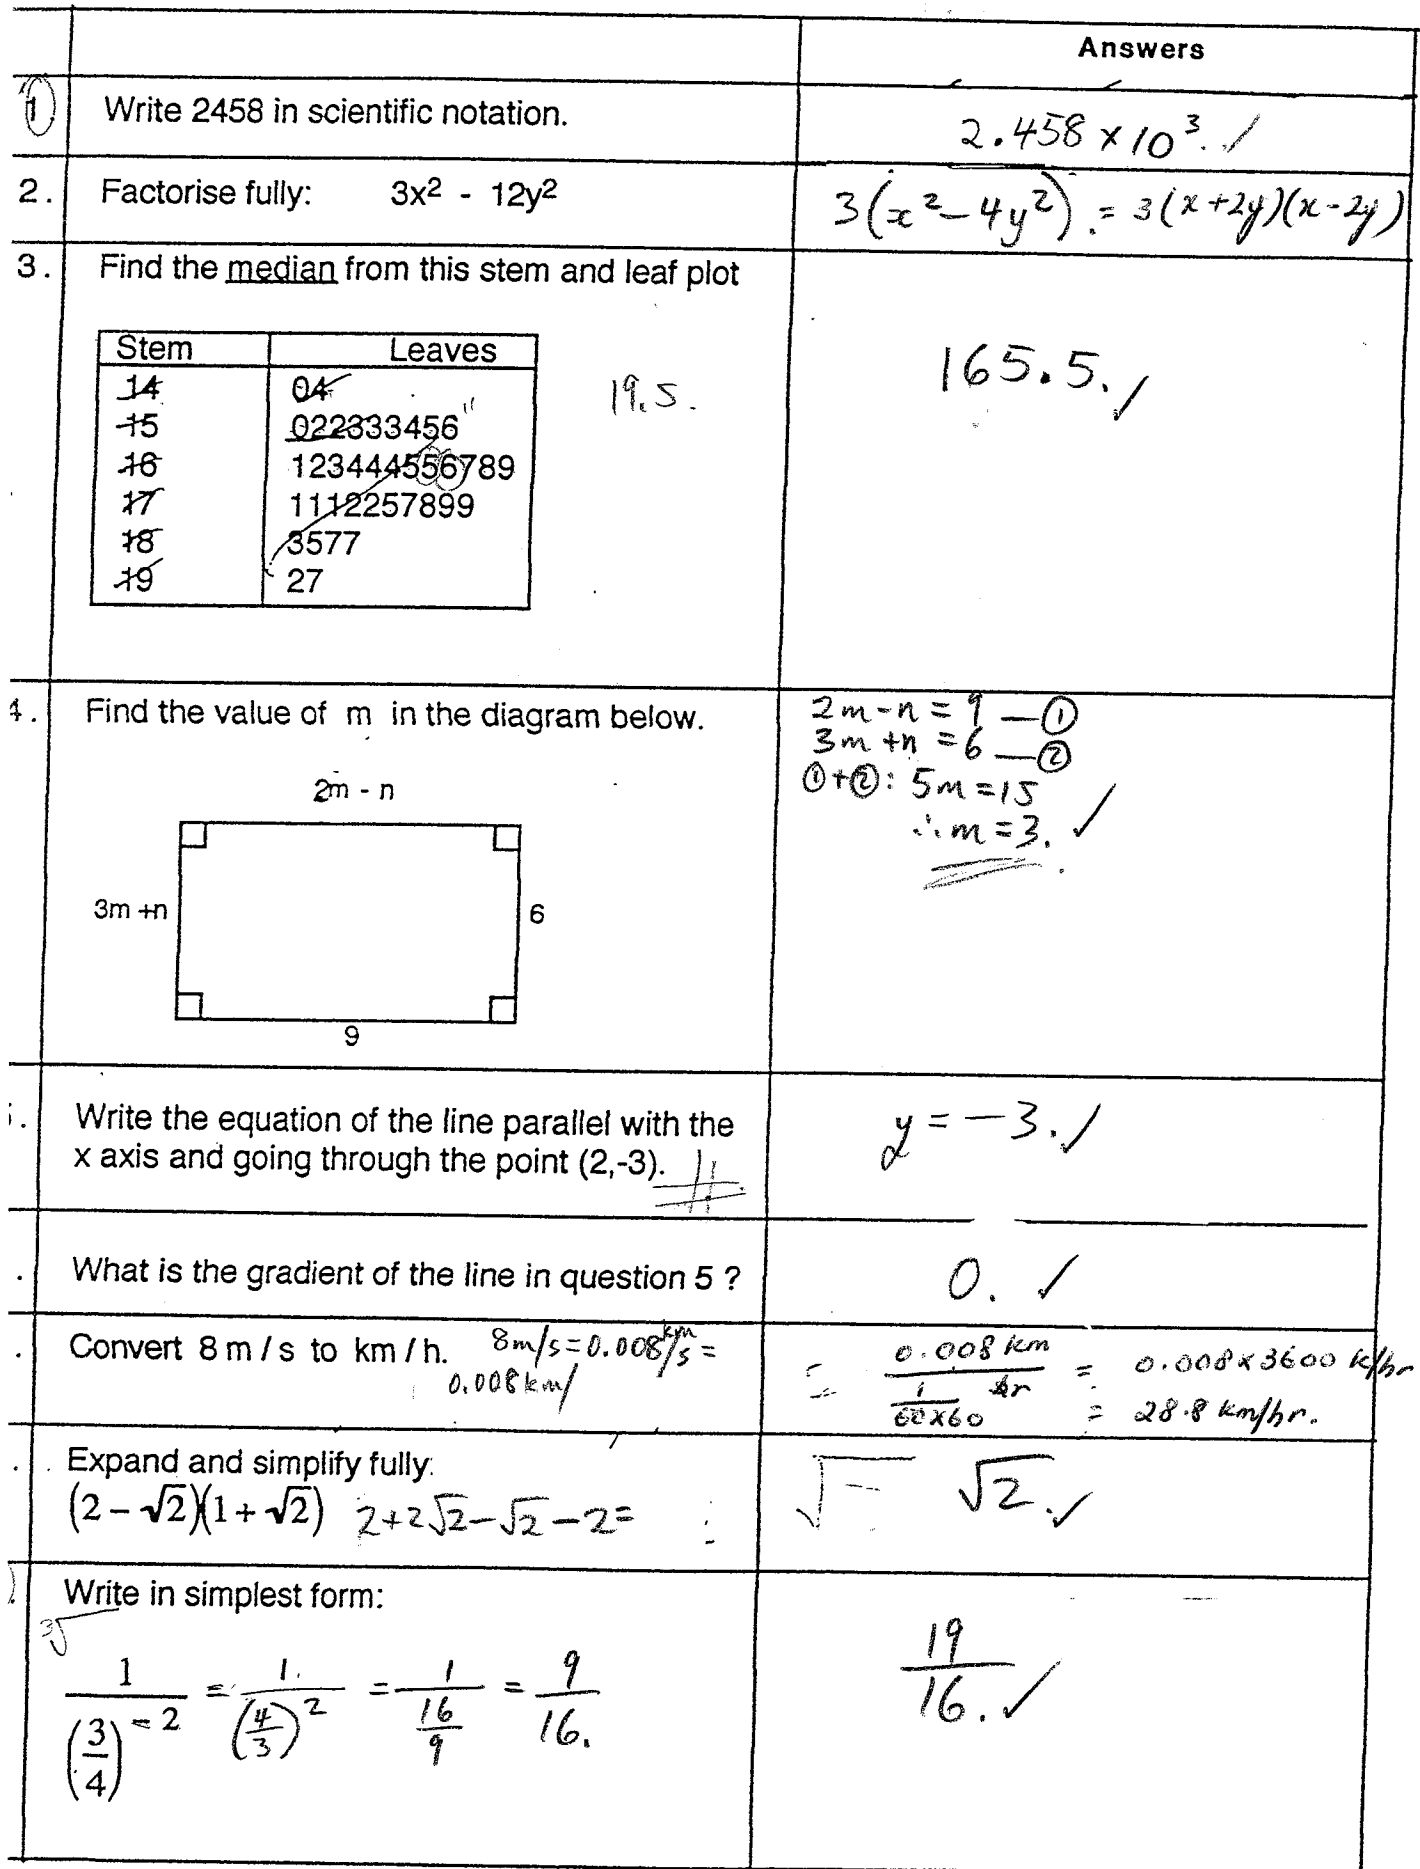 Answers
1 Write 2458 in scientific notation. 2.458 × 10³. ✓
2. Factorise fully: 3x² - 12y² 3(x² - 4y²). = 3(x+2y)(x-2y)
3. Find the median from this stem and leaf plot
Stem Leaves
14 04
15 022333456
16 123444556789
17 1112257899
18 3577
19 27
19.5.
165.5. ✓
4. Find the value of m in the diagram below.
2m - n
3m +n
6
9
2m - n = 9 — ①
3m + n = 6 — ②
①+②: 5m = 15
∴ m = 3. ✓
Write the equation of the line parallel with the
x axis and going through the point (2,-3).
y = -3. ✓
What is the gradient of the line in question 5 ? 0. ✓
Convert 8 m / s to km / h. 8m/s = 0.008 km/s =
0.008 km/
= 0.008 km / (1/(60×60) hr) = 0.008 × 3600 k/hr
= 28.8 km/hr.
Expand and simplify fully:
(2 - √2)(1 + √2) 2+2√2-√2-2=
√2. ✓
Write in simplest form:
1/(3/4)⁻² = 1/(4/3)² = 1/(16/9) = 9/16.
19/16. ✓